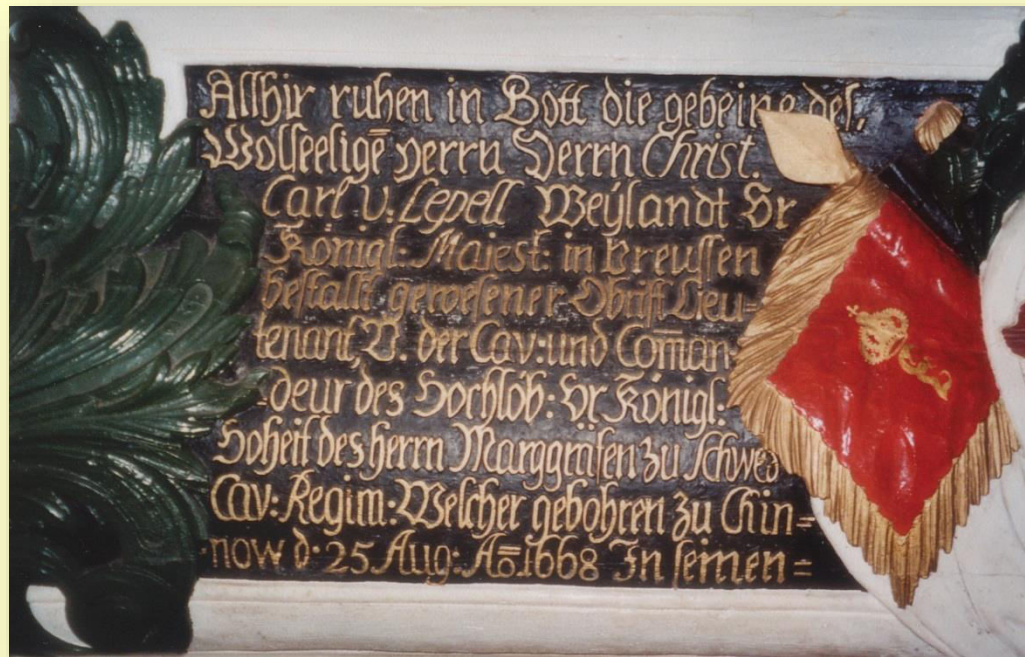 Allhir ruhen in Gott die gebeine des,
Wollseelige̅ Herrn Herrn Christ.
Carl v: Lepell Weÿlandt Sr
Königl: Maiest: in Preussen
bestallt gewesener Obrist Lieu=
tenant, V. der Cav: und Com̅an=
deur des Hochlöb: Sr Königl:
Hoheit des herrn Marggräfen zu Schwed
Cav: Regim: Welcher gebohren zu Chin=
now d. 25 Aug: Ao̅ 1668 In seinen=